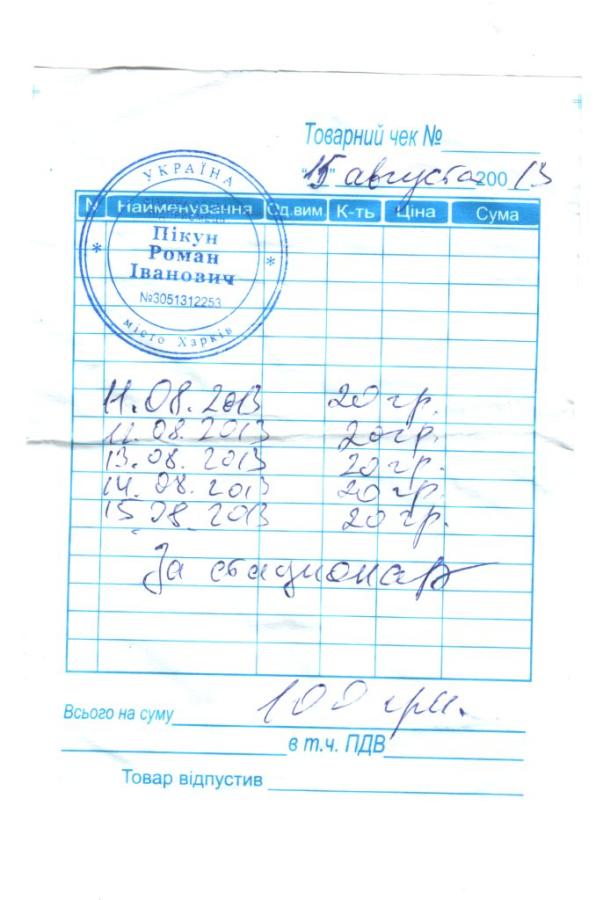 Товарний чек №
"15" августа 200 13
N Найменування Од.вим К-ть Ціна Сума
УКРАЇНА
Пікун
Роман
Іванович
№3051312253
місто Харків
11.08.2013 20 гр.
12.08.2013 20 гр.
13.08.2013 20 гр.
14.08.2013 20 гр.
15.08.2013 20 гр.
За стационар
Всього на суму 100 грн.
в т.ч. ПДВ
Товар відпустив